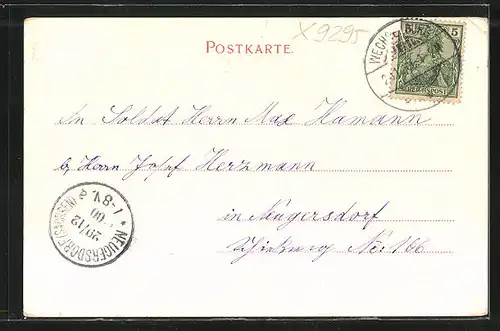 X 9295
POSTKARTE.
5
REICHSPOST
WECHSELBURG
An Soldat Herrn Max Hamann
b/ Herrn Josef Herzmann
in Neugersdorf
No: 166
* NEUGERSDORF (SACHSEN) a
29/12
00
7-8V.